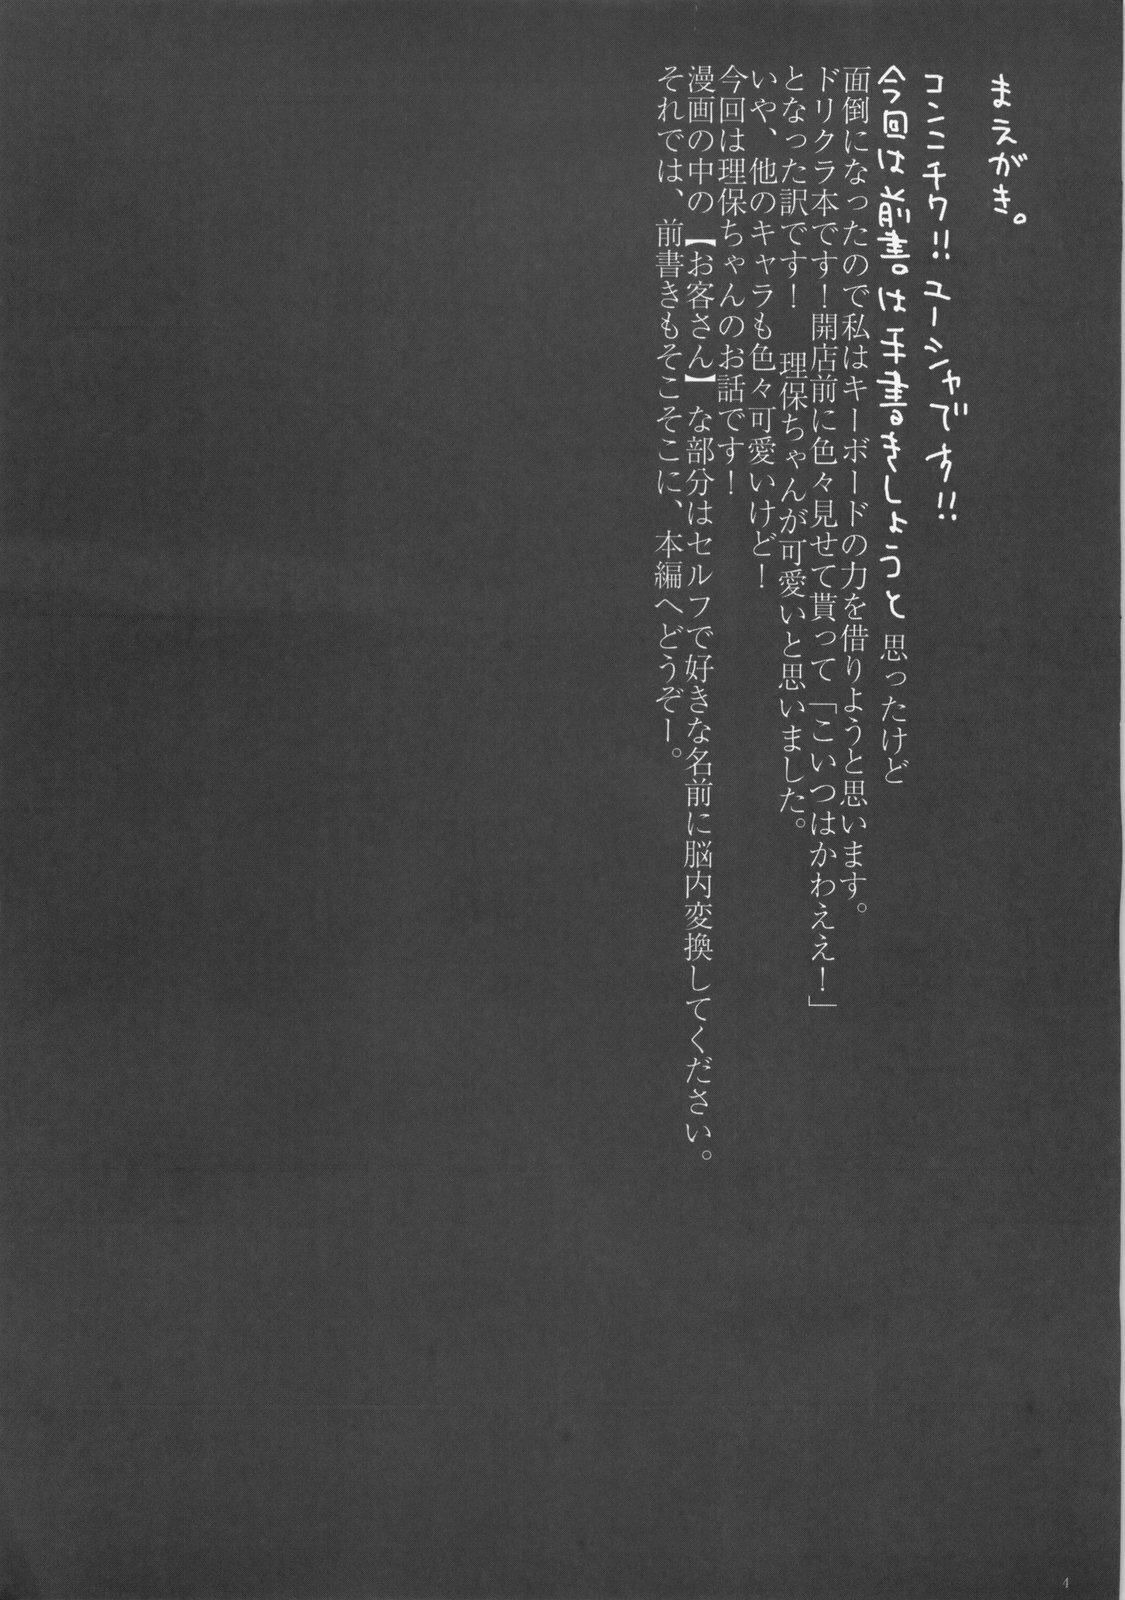 まえがき。
コンニチワ!!ユーシャです!!
今回は前書きは手書きしようと思ったけど
面倒になったので私はキーボードの力を借りようと思います。
ドリクラ本です！開店前に色々見せて貰って「こいつはかわええ！」
となった訳です！　理保ちゃんが可愛いと思いました。
いや、他のキャラも色々可愛いけど！
今回は理保ちゃんのお話です！
漫画の中の【お客さん】な部分はセルフで好きな名前に脳内変換してください。
それでは、前書きもそこそこに、本編へどうぞー。
4